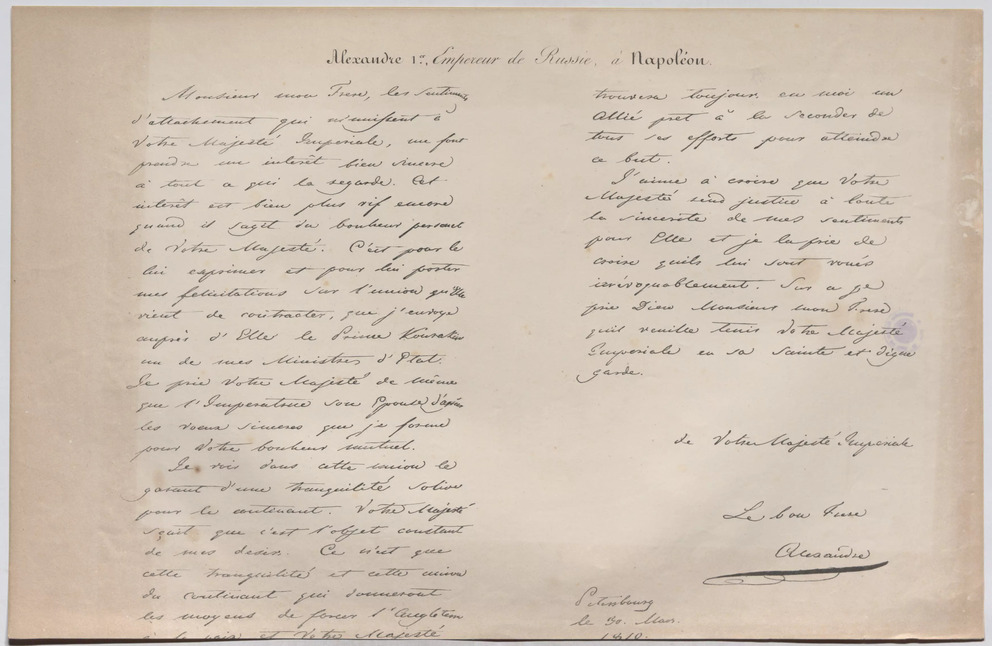 Alexandre 1er, Empereur de Russie, à Napoléon.
Monsieur mon Frere, les Sentiments
d'attachement qui m'unissent à
Votre Majesté Imperiale, me font
prendre un interêt bien sincere
à tout ce qui la regarde. Cet
interêt est bien plus vif encore
quand il s'agit du bonheur personel
de Votre Majesté. C'est pour le
lui exprimer et pour lui porter
mes felicitations sur l'union qu'Elle
vient de contracter, que j'envoye
auprès d'Elle le Prince Kourakin
un de mes Ministres d'Etat.
Je prie Votre Majesté de même
que l'Imperatrice son Epouse d'agréer
les voeux sinceres que je forme
pour Votre bonheur mutuel.
Je vois dans cette union le
garant d'une tranquilité solide
pour le continant. Votre Majesté
sçait que c'est l'objet constant
de mes desirs. Ce n'est que
cette tranquilité et cette union
du continant qui donneront
les moyens de forcer l'Angleterre
à la paix et Votre Majesté
trouvera toujours en moi un
Allié prêt à la seconder de
tous ses efforts pour atteindre
ce but.
J'aime à croire que Votre
Majesté rend justice à toute
la sincerité de mes sentiments
pour Elle et je la prie de
croire qu'ils lui sont voués
irrévoquablement. Sur ce je
prie Dieu Monsieur mon Frere
qu'il veuille tenir Votre Majesté
Imperiale en sa Sainte et digne
garde.
de Votre Majesté Imperiale
Le bon Frere
Alexandre
Petersbourg
le 30. Mars.
1810.